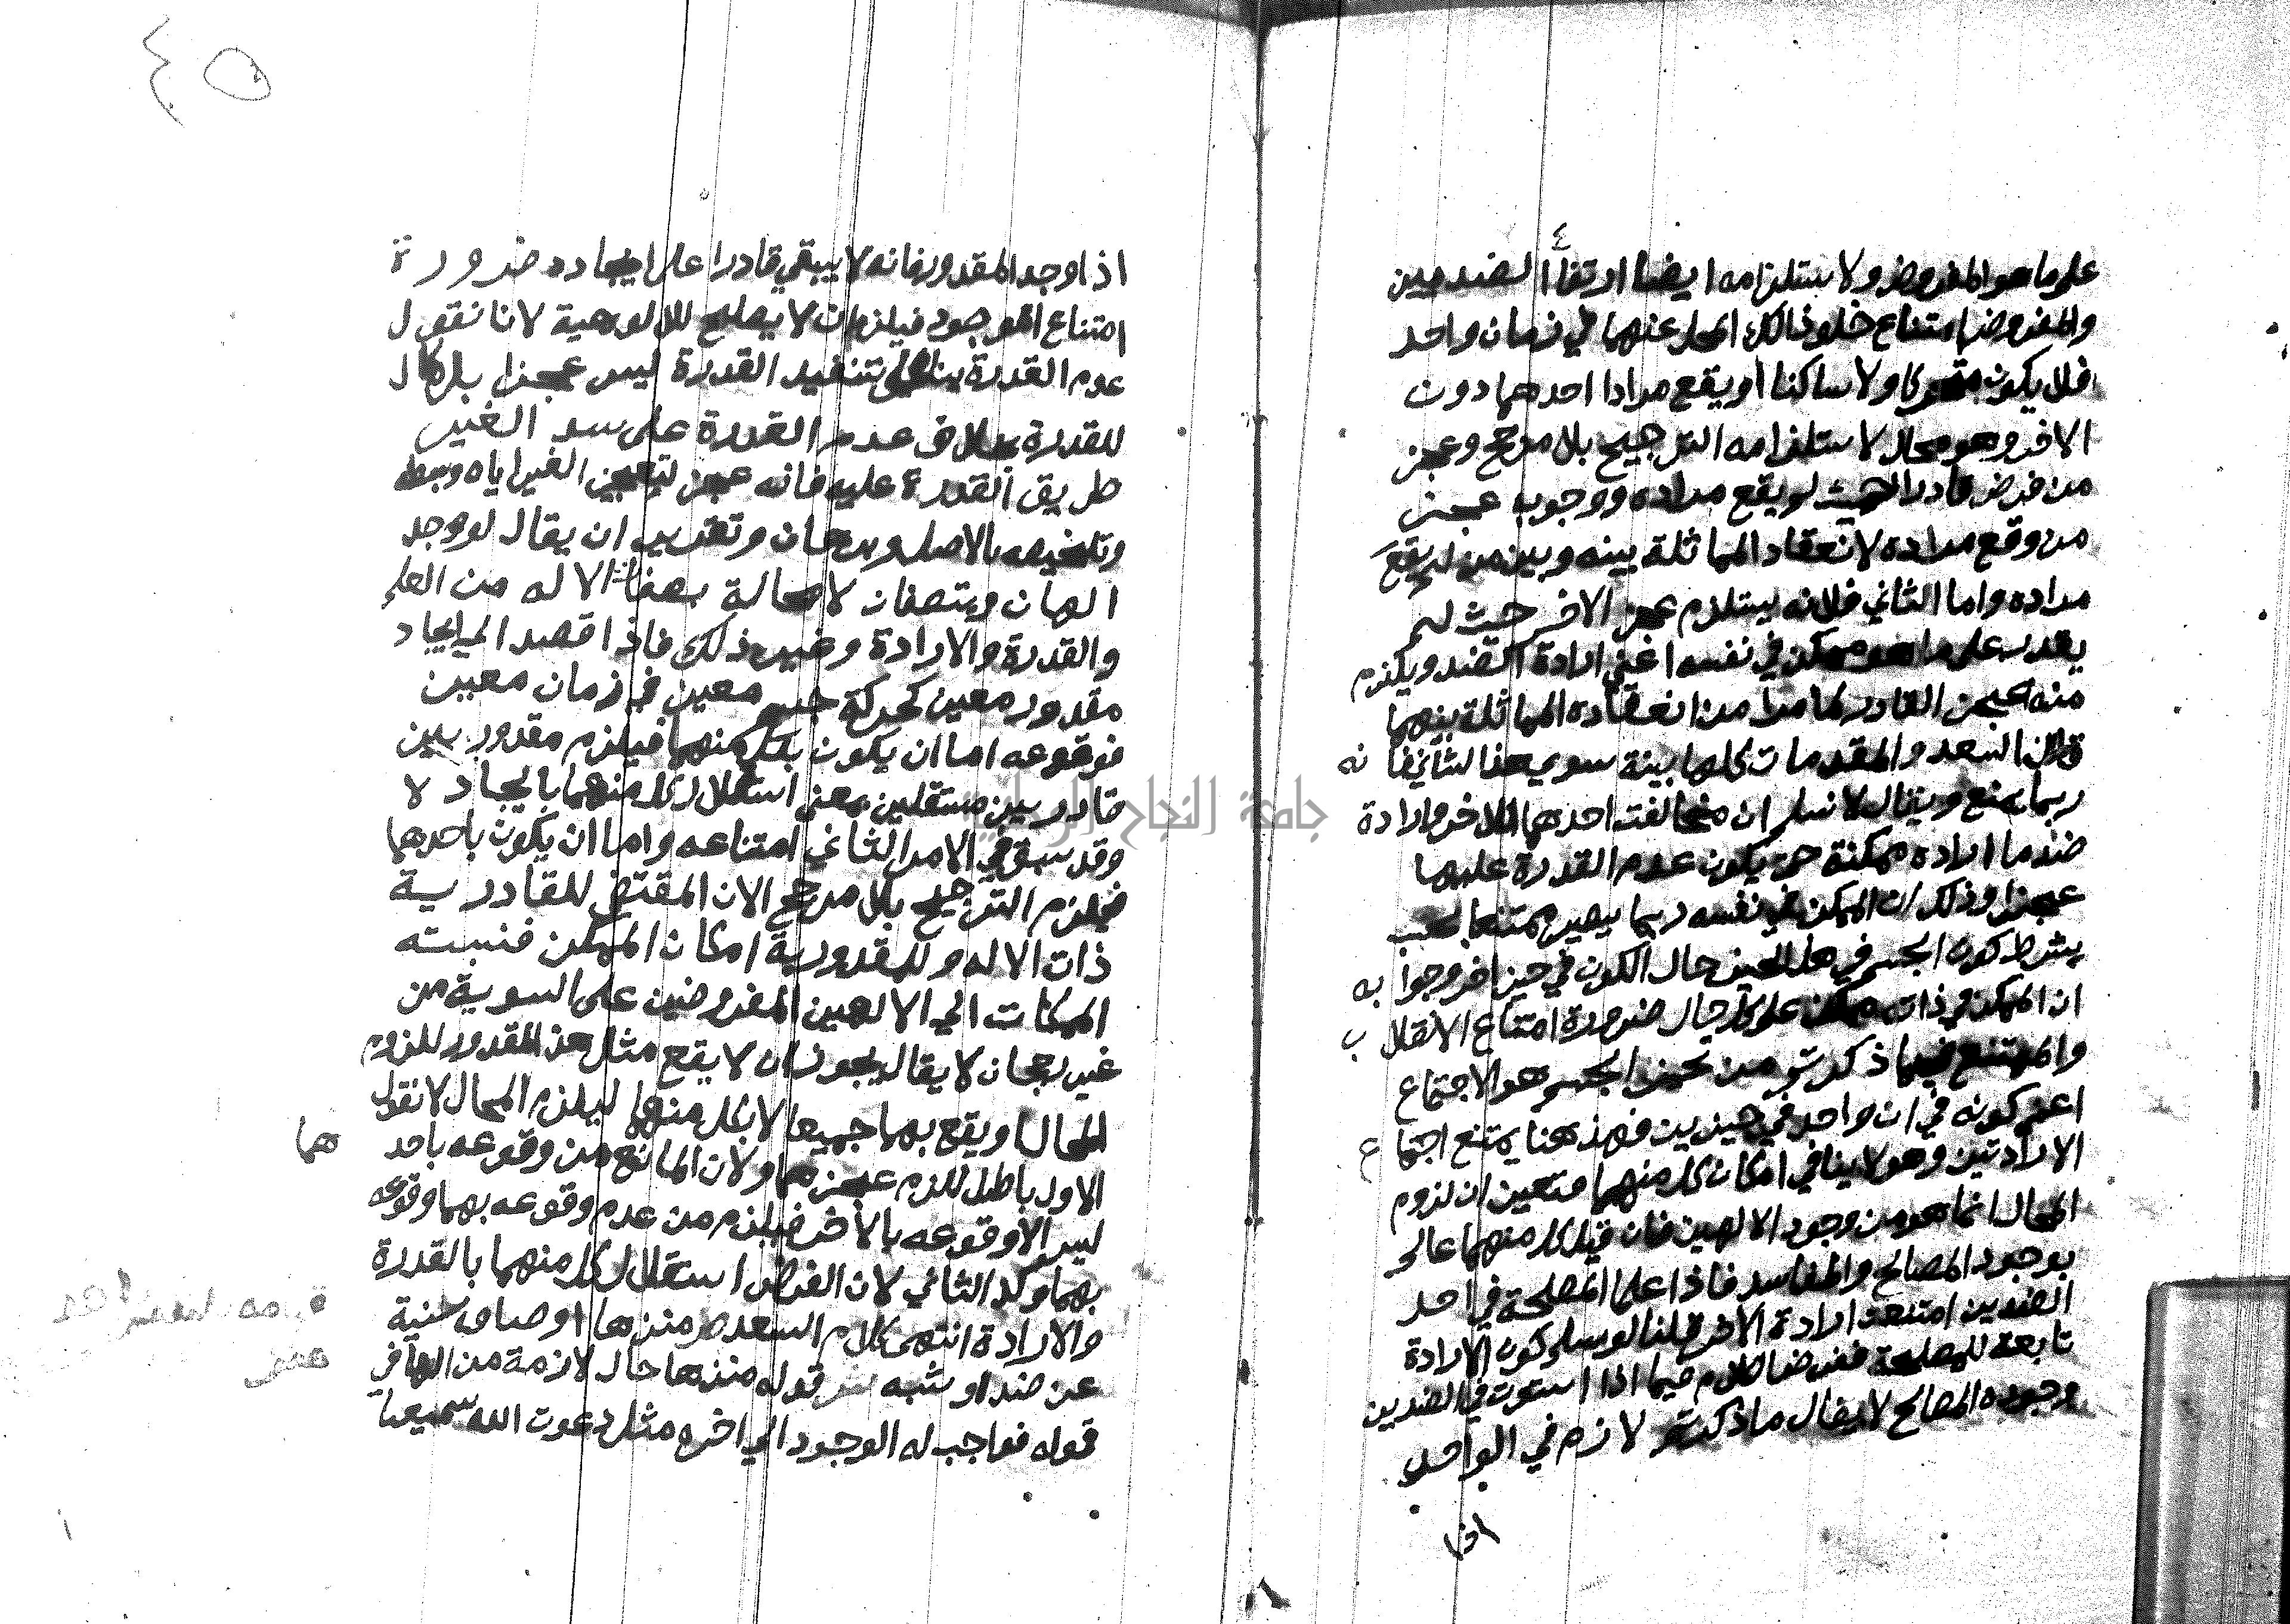 على ما هو المفروض ولا يستلزامه ايضا ارتفاع الضدين
والمفروض امتناع خلو ذالك المحل عنهما في زمان واحد
فلا يكون متحركا ولا ساكنا او يقع مرادا احدهما دون
الاخر وهو محال لاستلزامه الترجيح بلا مرجح وعجز
من فرض قادرا لم يقع مراده ووجوب عجز
من وقع مراده لانعقاد المماثلة بينه وبين من لم يقع
مراده واما الثاني فلانه يستلزم عجز الاخر حيث لم
يقدر على ما هو ممكن في نفسه اعني ارادة الضد ويلزم
منه عجز القادر لما مر من انعقاده المماثلة بينهما
قال السعد والمقدمات كلها بينة سوي هذا الثاني فانه
ربما يمنع ويقال لا نسلم ان مخالفت احدهما للاخر وارادة
ضد ما اراده ممكنة حتى يكون عدم القدرة عليها
عجزا وذلك ان الممكن في نفسه ربما يصير ممتنعا بحسب
بشرط كون الجسم في هذا الحيز حال الكون في حيز اخر وجوابه
ان الممكن في ذاته ممكن على كل حال ضرورة امتناع الانقلاب
والممتنع فيما ذكرتم من تحيز الجسم هو الاجتماع
اعني كونه في ان واحد في حيزين فهذهنا يمتنع اجتماع
الارادتين وهو لا ينافي امكان كل منهما فتعين ان لزوم
المحال انما هو من وجود الالهين فان قيل كل منهما عالم
بوجود المصالح والمفاسد فاذا علما المصلحة في احد
الضدين امتنعت ارادة الاخر قلنا لو سلم كون الارادة
تابعة للمصلحة ففرضنا الكلام فيما اذا استوت في الضدين
وجوده المصالح لا يقال ما ذكرتم لازم في الواحد
اذا
٤٥
اذا وجد المقدور فانه لا يبقي قادرا على ايجاده ضرورة
امتناع الموجود فيلزم ان لا يصلح للالوهية لانا نقول
عدم القدرة بناء على تنفيد القدرة ليس عجزا بل كمال
للقدرة بخلاف عدم القدرة على سد الغير
طريق القدرة عليه فانه عجز لتعجيز الغير اياه وبسط
وتلخيصه بالاصل وبرهان وتقدير ان يقال لو وجد
الهان ويتصفان لا محالة بصفات الاله من العلم
والقدرة والارادة وغير ذلك فاذا قصد الي ايجاد
مقدور معين كحركة جسم معين في زمان معين
فوقوعه اما ان يكون بكل منهما فيلزم مقدور بين
قادرين مستقلين بمعنى استقلال كل منهما بايجاد لا
وقد سبق في الامر الثاني امتناعه واما ان يكون باحدهما
فيلزم الترجيح بلا مرجح الان المقتضي للقادرية
ذات الاله وللمقدورية امكان الممكن فنسبته
الممكنات الي الالهين المفروضين على السوية من
غير رجحان لا يقال يجوز ان لا يقع مثل هذا المقدور للزوم
المحال او يقع بهما جميعا لا بكل منهما ليلزم المحال لا نقول
الاول باطل للزم عجزهما ولان المانع من وقوعه باحدهما
ليس الا وقوعه بالاخر فيلزم من عدم وقوعه بهما وقوعه
بهما وكذ الثاني لان الفرض استقلال كل منهما بالقدرة
والارادة انتهى كلام السعد ص منزها اوصاف سنية
عن ضد او شبه ش قوله منزها حال لازمة من الها في
قوله فواجب له الوجود الي اخره مثل دعوت الله سميعا
جامعة النجاح الوطنية